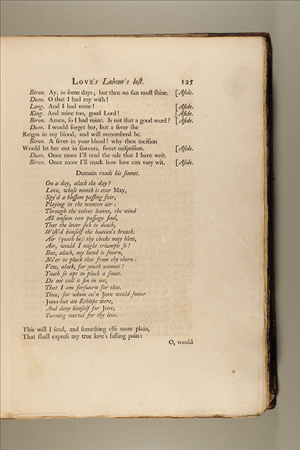 LOVE's Labour's lost. 125
Biron. Ay, as some days; but then no sun must shine. [Aside.
Dum. O that I had my wish!
Long. And I had mine! [Aside.
King. And mine too, good Lord! [Aside.
Biron. Amen, so I had mine. Is not that a good word? [Aside.
Dum. I would forget her, but a fever she
Reigns in my blood, and will remembred be.
Biron. A fever in your blood! why then incision
Would let her out in sawcers, sweet misprision. [Aside.
Dum. Once more I'll read the ode that I have writ.
Biron. Once more I'll mark how love can vary wit. [Aside.
Dumain reads his sonnet.
On a day, alack the day!
Love, whose month is ever May,
Spy'd a blossom passing fair,
Playing in the wanton air:
Through the velvet leaves, the wind
All unseen can passage find,
That the lover sick to death,
Wish'd himself the heaven's breath.
Air (quoth he) thy cheeks may blow,
Air, would I might triumph so!
But, alack, my hand is sworn,
Ne'er to pluck thee from thy thorn:
Vow, alack, for youth unmeet!
Youth so apt to pluck a sweet.
Do not call it sin in me,
That I am forsworn for thee.
Thou, for whom ev'n Jove would swear
Juno but an Ethiope were,
And deny himself for Jove,
Turning mortal for thy love.
This will I send, and something else more plain,
That shall express my true love's fasting pain:
O, would